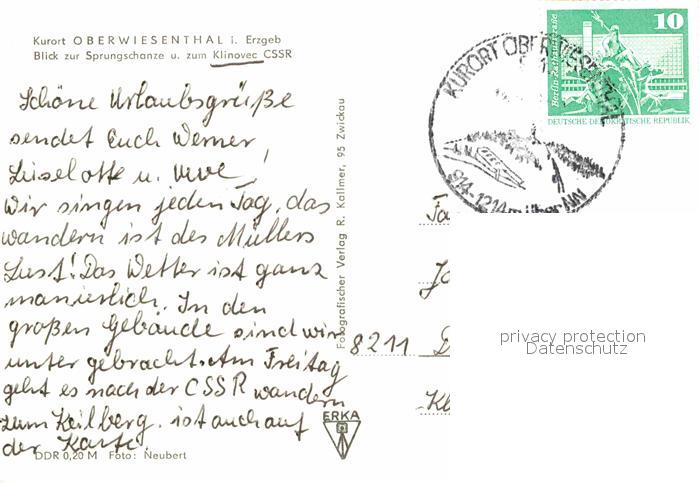 Kurort OBERWIESENTHAL i. Erzgeb
Blick zur Sprungschanze u. zum Klinovec CSSR
Schöne Urlaubsgrüße
sendet Euch Werner,
Liselotte u. Uwe!
Wir singen jeden Tag, das
wandern ist des Müllers
Lust! Das Wetter ist ganz
manierlich. In den
großen Gebäude sind wir
unter gebracht. Am Freitag
geht es nach der CSSR wandern
zum Keilberg. ist auch auf
der Karte.
DDR 0,20 M Foto: Neubert
Fotografischer Verlag R. Kallmer, 95 Zwickau
ERKA
KURORT OBERWIESENTHAL
914-1214 m über NN
10
Berlin-Rathausstraße
DEUTSCHE DEMOKRATISCHE REPUBLIK
8211 D
privacy protection
Datenschutz